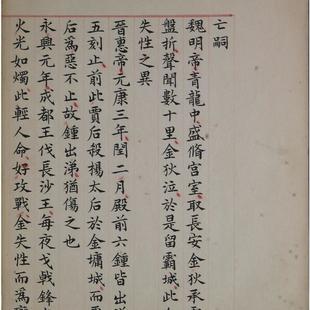 亡嗣
魏明帝青龍中盛脩宮室取長安金狄承
盤折聲聞數十里金狄泣於是留霸城此
失性之異
晉惠帝元康三年閏二月殿前六鍾皆出
五刻止前此賈后殺楊太后於金墉城而
后為惡不止故鍾出涕猶傷之也
永興元年成都王伐長沙王每夜戈戟鋒
火光如燭此輕人命好攻戰金失性而為